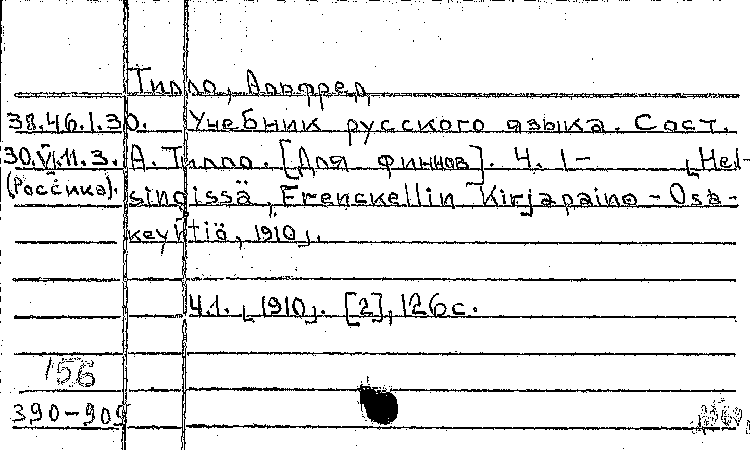 Тилло, Альфред
38.46.1.30. Учебник русского языка. Сост.
30.VI.11.3. А. Тилло. [Для финнов]. Ч. 1- ⌊Hel-
(Россика). singissä, Frenckellin Kirjapaino-Osa-
keyhtiö, 1910⌋.
Ч.1. ⌊1910⌋. [2], 126 с.
156
390-909